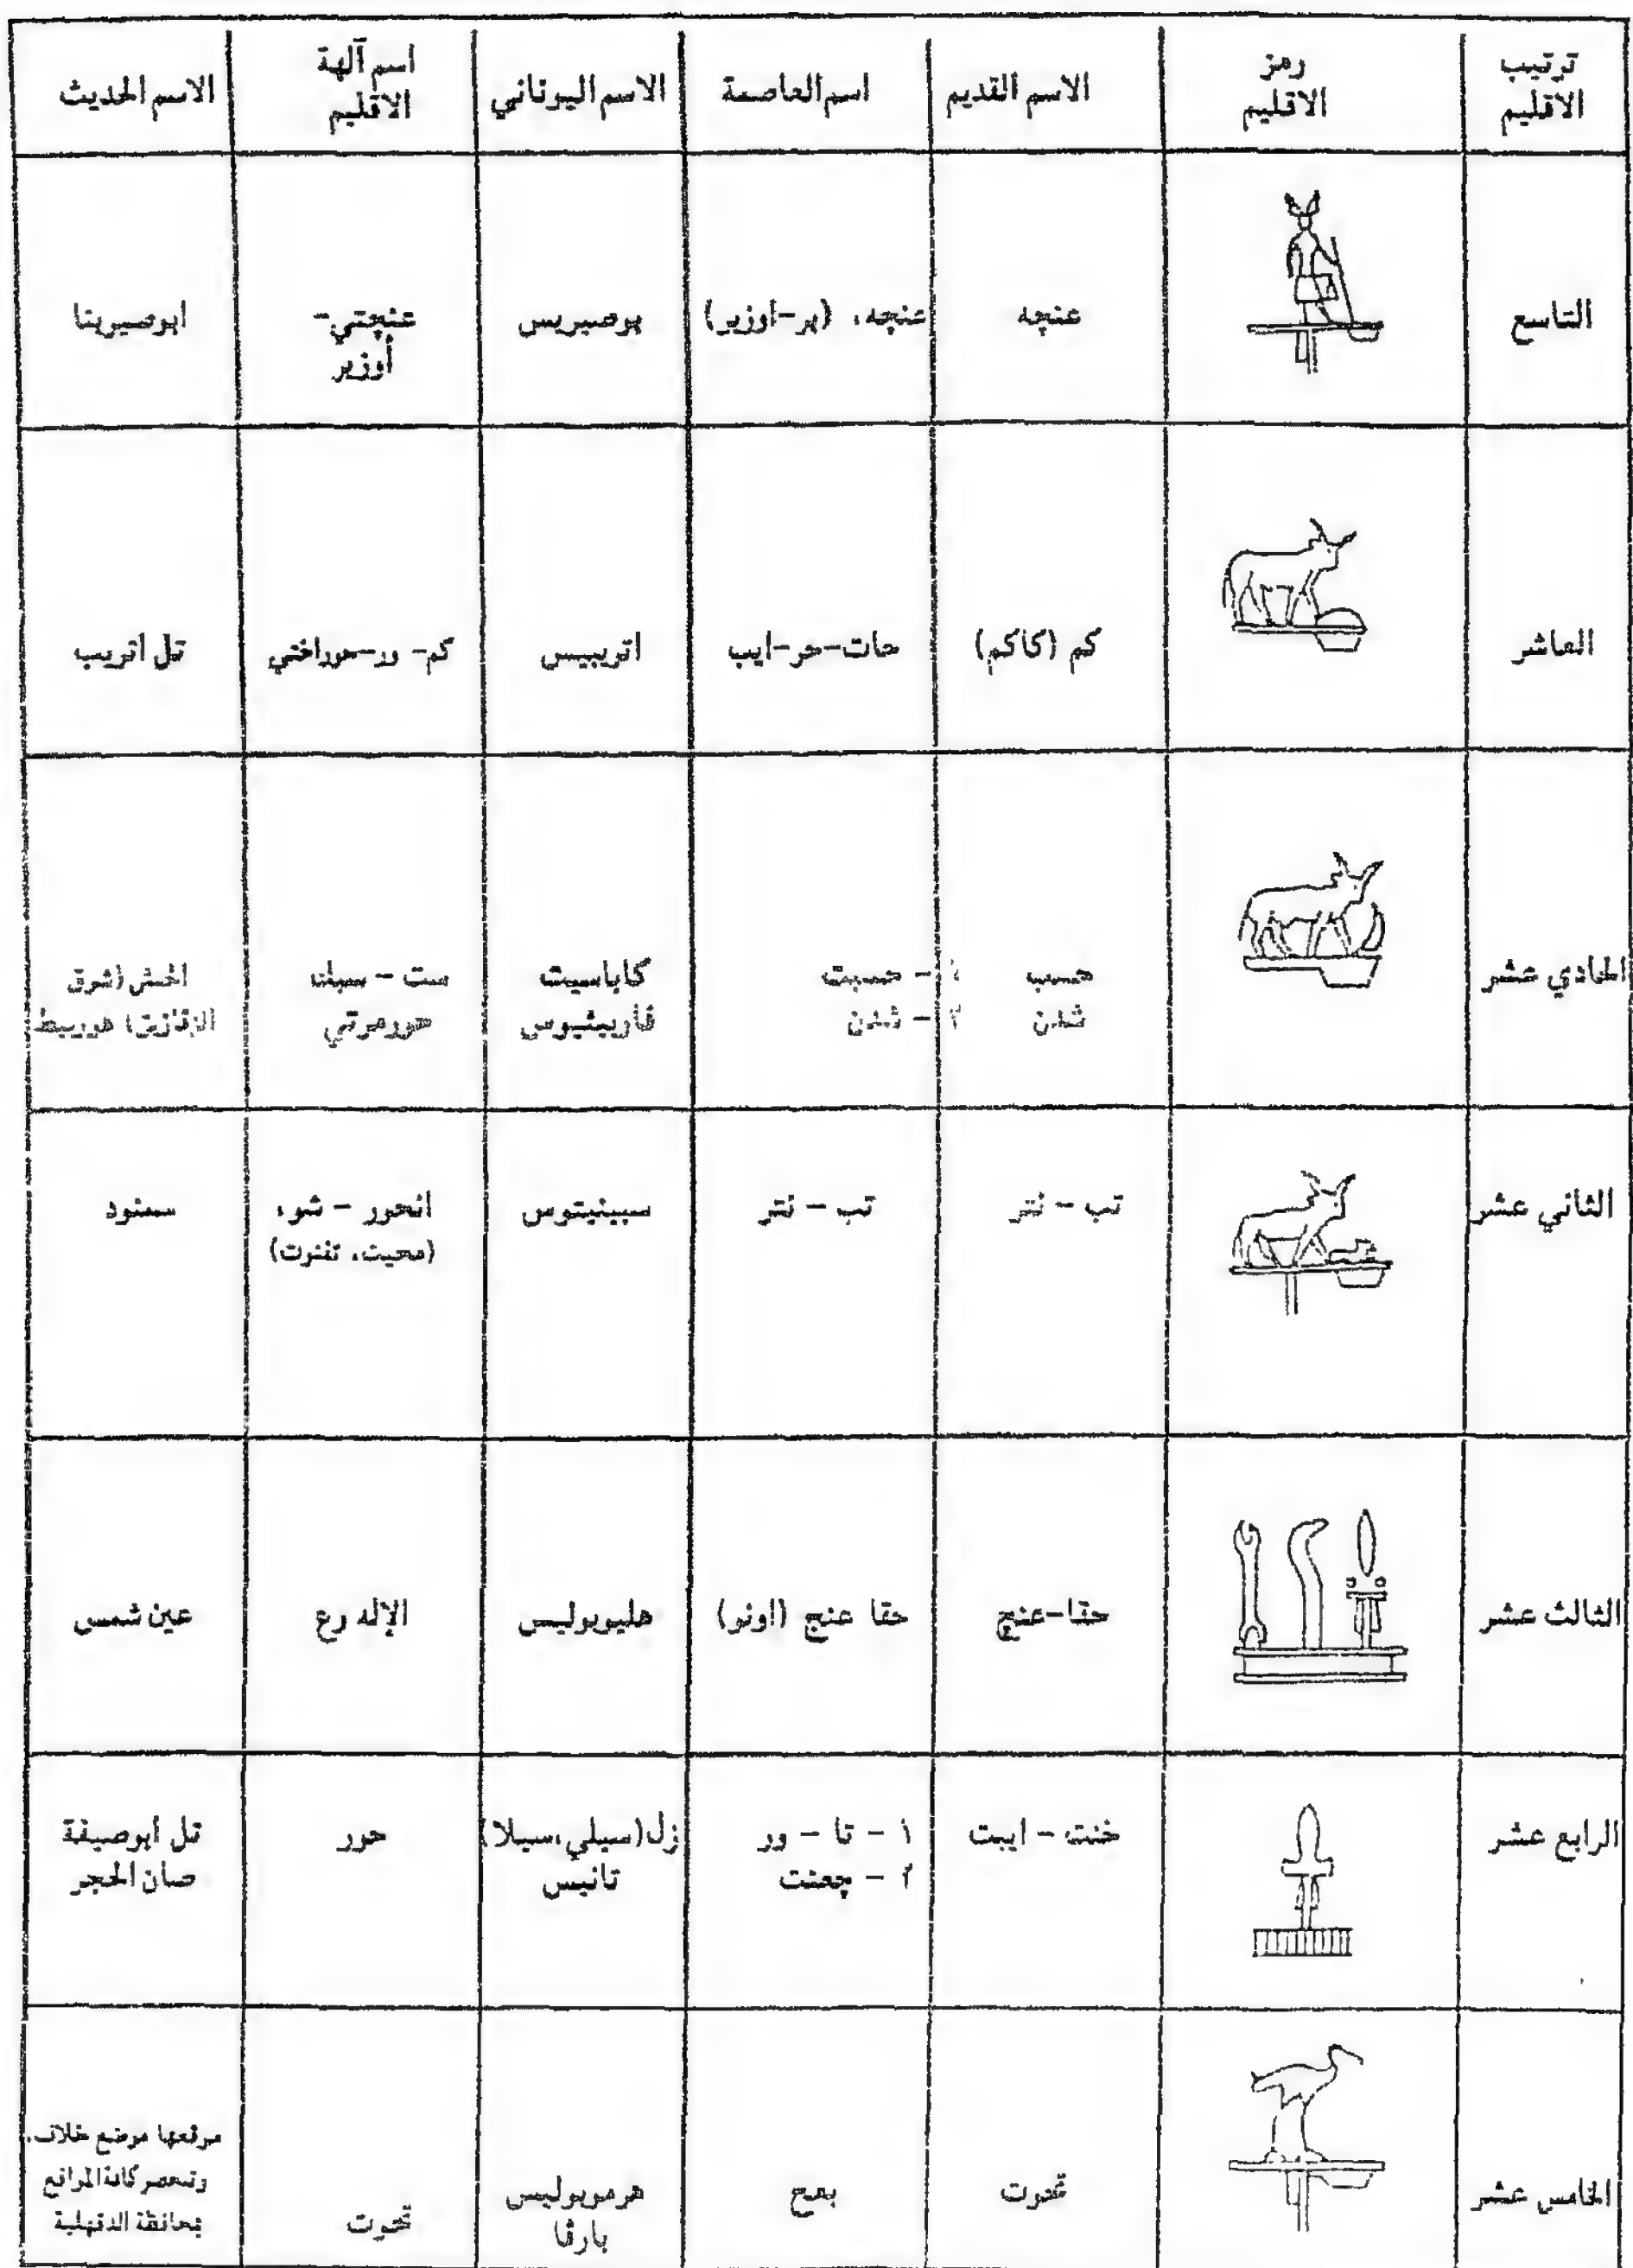 ترتيب الاقليم
رمز الاقليم
الاسم القديم
اسم العاصمة
الاسم اليوناني
اسم آلهة الاقليم
الاسم الحديث
التاسع
عنچه
عنچه، (پر-اوزير)
بوصيريس
عنچتي-
أوزير
ابوصيربنا
العاشر
كم (كاكم)
حات-حر-ايب
اتريبيس
كم- ور-حوراختي
تل اتريب
الحادي عشر
حسب
شدن
١ - حسبت
٢ - شدن
كاباسيت
فاربيثيوس
ست - سبك
حورمرتي
الحبش (شرق
الزقازيق) هوربيط
الثاني عشر
تب - نتر
تب - نتر
سبينيتوس
انحور - شو،
(محيت، تفنوت)
سمنود
الثالث عشر
حقا-عنچ
حقا عنج (اونو)
هليوبوليس
الإله رع
عين شمس
الرابع عشر
خنت - ايبت
١ - تا - ور
٢ - چعنت
زل(سيلي،سيلا)
تانيس
حور
تل ابوصيفة
صان الحجر
الخامس عشر
تحوت
بعح
هرموبوليس
بارڤا
تحوت
موقعها موضع خلاف.
وتنحصر كافة المواقع
بمحافظة الدقهلية